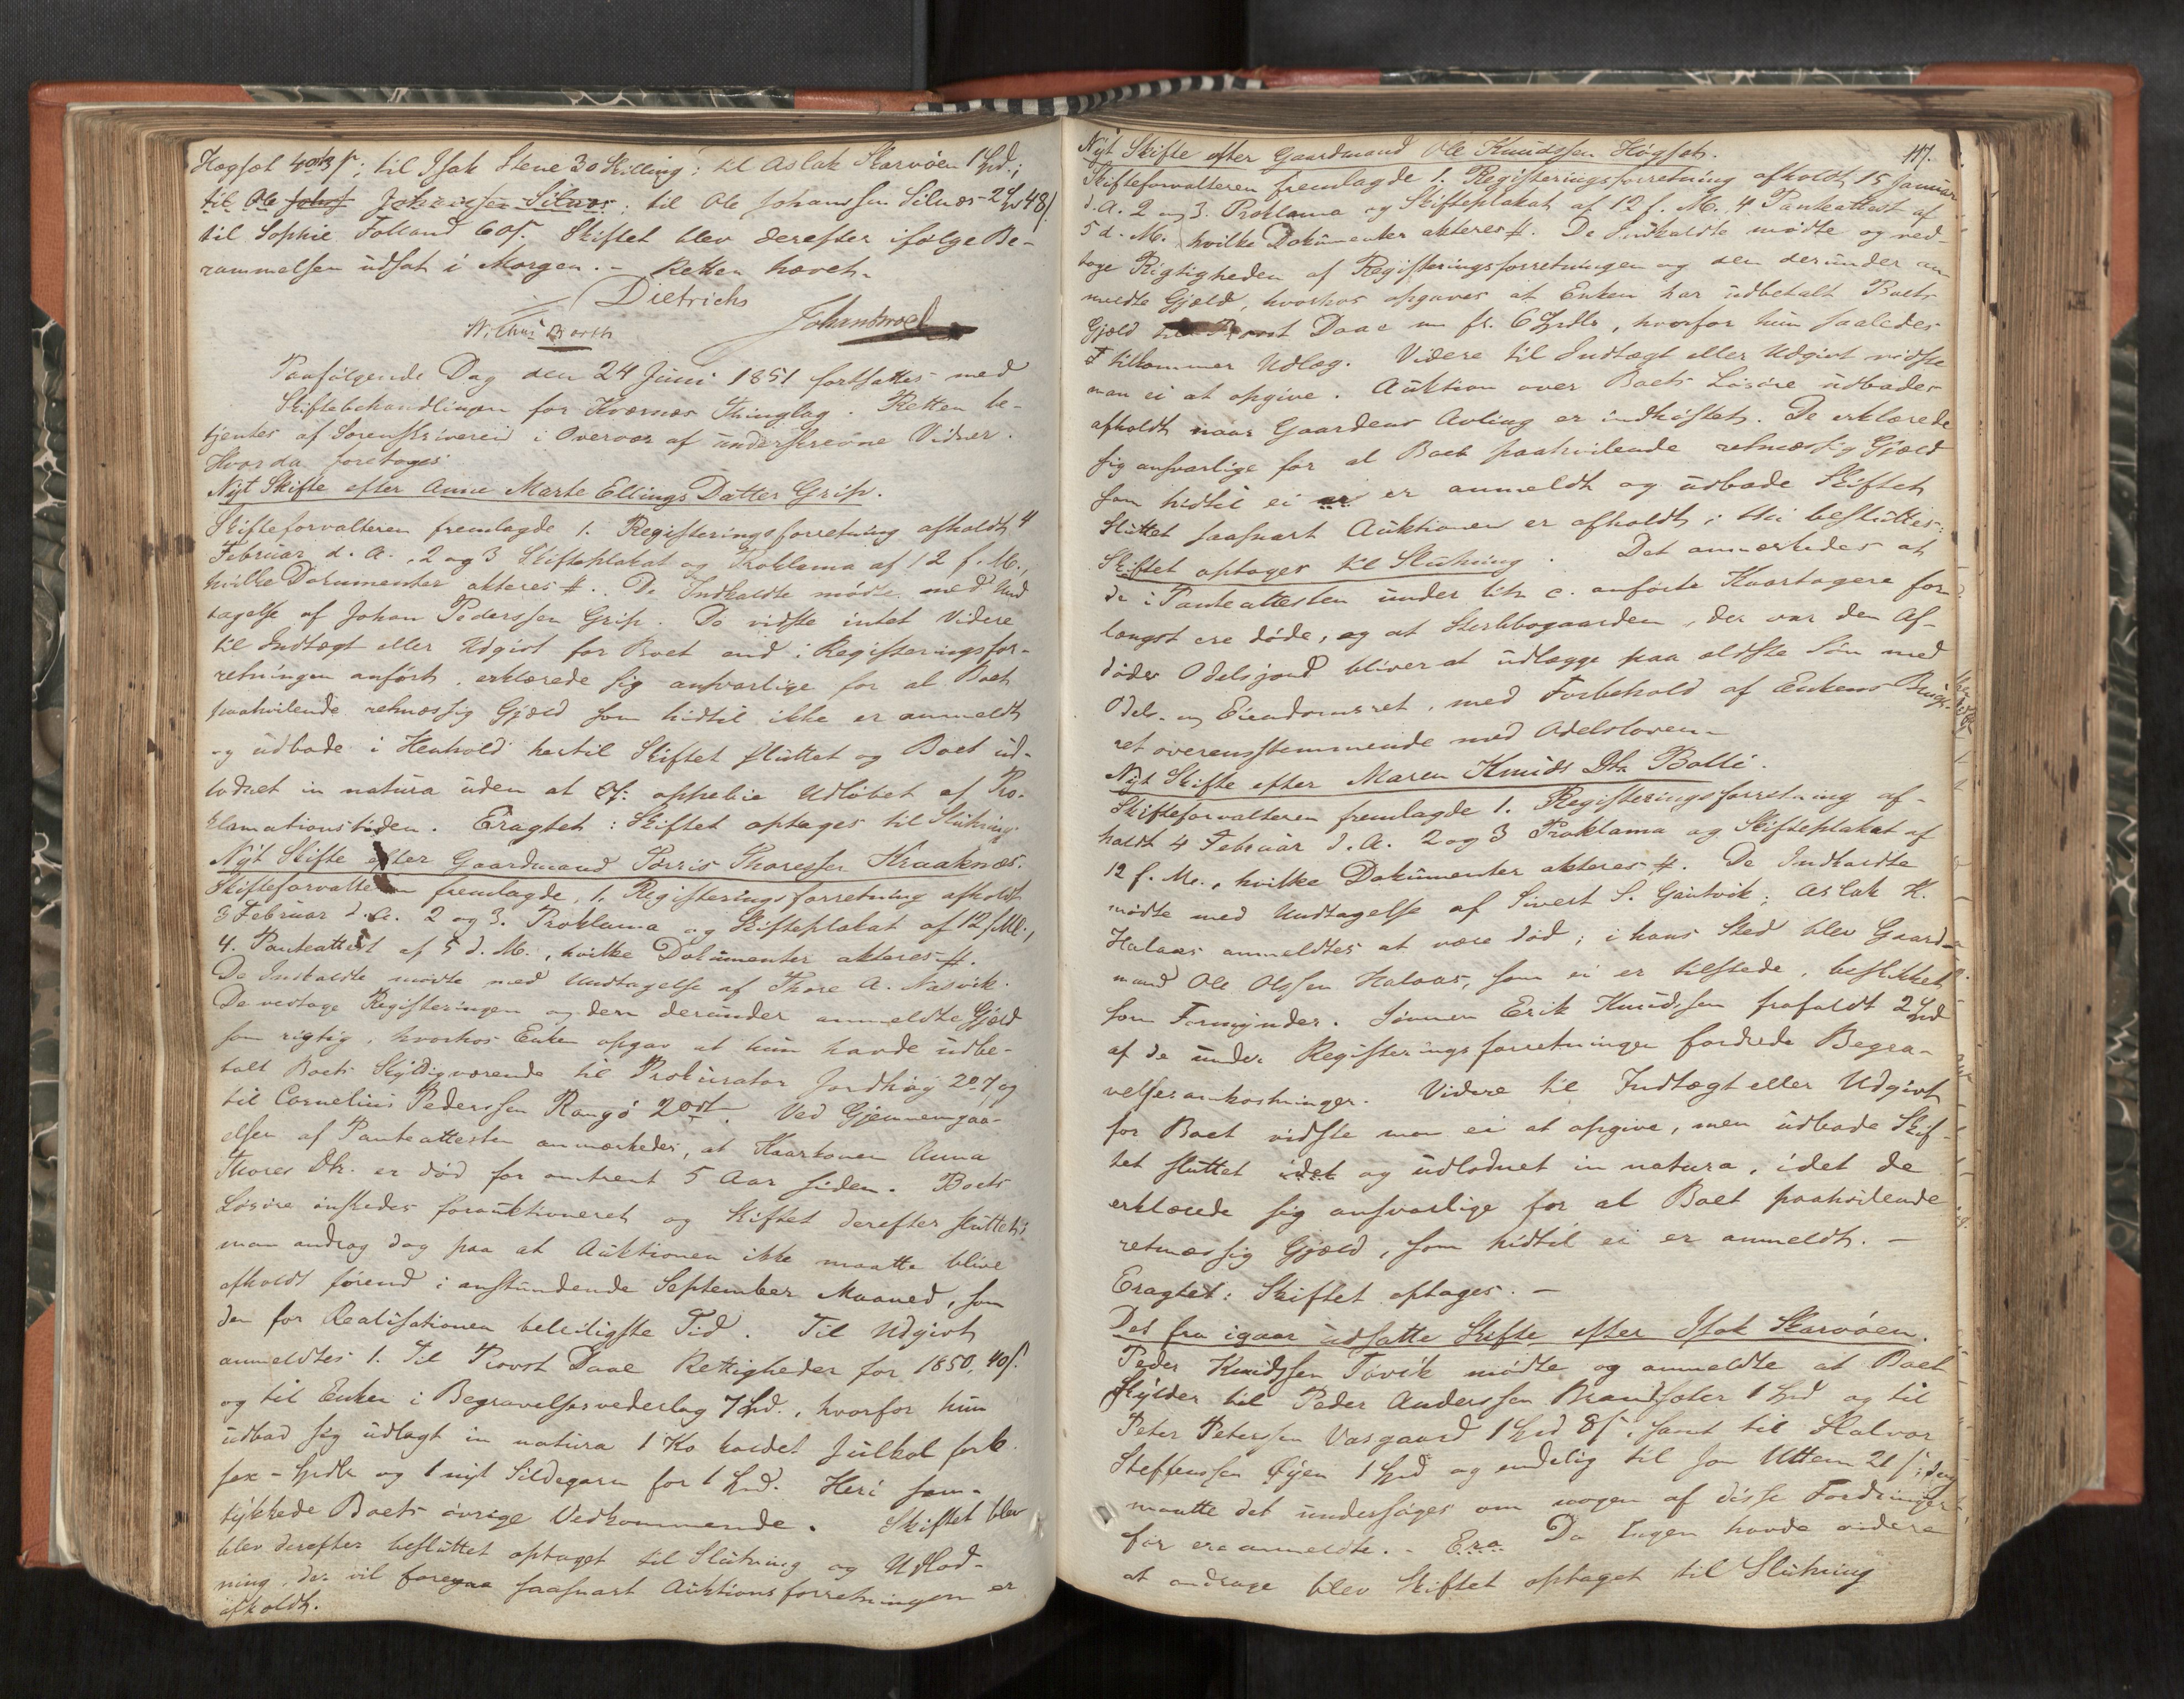 Høgset 40 ß; til Isak Stene 30 Skilling; til Aslak Skarvøen 1 Spd.;
til Ole Johs Johanssen Silnes; til Ole Johanssen Silnæs 2 Spd 48 ß
til Sophie Folland 60 ß. Skiftet blev derefter ifølge Be-
rammelsen udsat i Morgen. - Retten hævet.
Dietrichs
Barth
Paafølgende Dag den 24 Juni 1851 fortsattes med
Skiftebehandlingen for Kvernæs Thinglag. Retten be-
tjentes af Sorenskriveren i Overvær af underskrevne Vidner.
Hvor da foretoges
Nyt Skifte efter Anne Marte Ellings Datter Grip.
Skifteforvalteren fremlagde 1. Registeringsforretning afholdt 4
Februar d. A., 2 og 3 Skifteplakat og Proklama af 12 f. M.,
hvilke Documenter akteres #. De Indkaldte mødte med Und
tagelse af Johan Pederssen Grip. De vidste intet Videre
til Indtægt eller Udgivt for Boet end i Registeringsfor-
retningen anført, erklærede sig ansvarlige for al Boet
paahvilende retmæssig Gjæld som hidtil ikke er anmeldt
og udbade i Henhold hertil Skiftet sluttet og Boet ud-
loddet in natura uden at oppebie Udløbet af Pro-
klamationstiden. Eragtet: Skiftet optages til Slutning
Nyt Skifte efter Gaardmand Torris Thoressen Kraaknæs.
Skifteforvalteren fremlagde, 1. Registeringsforretning afholdt
5 Februar d. A. 2 og 3. Proklama og Skifteplakat af 12 f. M.,
4. Panteattest af 5 d. M., hvilke Dokumenter akteres #.
De Indkaldte mødte med Undtagelse af Thore A. Næsvik.
De vedtoge Registeringen og den derunder anmeldte Gjæld
som rigtig, hvorhos Enken opgav at hun havde udbe-
talt Boets Skyldigværende til Prokurator Jordhøy 20 ß og
til Cornelius Pederssen Rangø 20 ß. Ved Gjennemgaa-
elsen af Panteattesten anmærkedes, at Kaarkonen Anna
Thores Dtr. er død for omtrent 5 Aar siden. Boets
Løsøre ønskedes forauktioneret og Skiftet derefter sluttet;
man androg dog paa at Auktionen ikke maatte blive
afholdt førend i anstundende September Maaned, som
den for Realisationen beleiligste Tid. Til Udgivt
anmeldtes 1. Til Provst Daae Rettigheder for 1850, 40 ß.
og til Enken i Begravelsesvederlag 7 Spd., hvorfor hun
udbad sig udlagt in natura 1 Ko kaldet Julkol for 6
sex - Spdlr og 1 nyt Sildegarn for 1 Spd. Heri sam-
tykkede Boets øvrige Vedkommende. Skiftet blev
blev derefter besluttet optaget til Slutning og Udlod-
ning, der vil foregaa saasnart Auktionsforretningen er
afholdt.
117.
Nyt Skifte efter Gaardmand Ole Knudssen Høgset.
Skifteforvalteren fremlagde 1. Registeringsforretning afholdt 15 Januar
d. A. 2 og 3. Proklama og Skifteplakat af 12 f. M., 4 Panteattest af
5 d. M. hvilke Dokumenter akteres #. De Indkaldte mødte og ved-
toge Rigtigheden af Registeringsforretningen og den derunder an-
meldte Gjæld, hvorhos opgaves at Enken har udbetalt Boets
Gjæld til Provst Daae 6 Spdlr, hvorfor hun saaledes
tilkommer Udlæg. Videre til Indtægt eller Udgivt vidste
man ei at opgive. Auktion over Boets Løsøre udbades
afholdt naar Gaardens Avling er indhøstet. De erklærede
sig ansvarlige for al Boet paahvilende retmæssig Gjæld
som hidtil ei er er anmeldt og udbade Skiftet
sluttet saasnart Auktionen er afholdt; thi besluttes:
Skiftet optages til Slutning. Det anmærkedes at
de i Panteattesten under litr c. anførte Kaartagere for
længst ere døde, og at Sterbbogaarden, der var den Af-
dødes Odelsjord bliver at udlægge paa ældste Søn med
Odels- og Eiendomsret, med Forbehold af Enkens Brugs-
ret overensstemmende med Odelsloven. -
Nyt Skifte efter Maren Knuds Dtr Bolli.
Skifteforvalteren fremlagde 1. Registeringsforretning af-
holdt 4 Februar d. A. 2 og 3 Proklama og Skifteplakat af
12 f. M., hvilke Dokumenter akteres #. De Indkaldte
mødte med Undtagelse af Sivert S. Gautvik; Aslak K.
Halaas anmeldtes at være død; i hans Sted blev Gaard-
mand Ole Olssen Halaas, som ei er tilstede, beskikket
som Formynder. Sønnen Erik Knudssen frafaldt 2 Spd
af de under Registeringsforretningen fordrede Begra-
velsesomkostninger. Videre til Indtægt eller Udgivt
for Boet vidste man ei at opgive, men udbade Skif-
tet sluttet idet og udloddet in natura, idet de
erklærede sig ansvarlige for al Boet paahvilende
retmæssig Gjæld, som hidtil ei er anmeldt. -
Eragtet: Skiftet optages. -
Det fra igaar udsatte Skifte efter Isak Skarvøen.
Peder Knudssen Tøvik mødte og anmeldte at Boet
skylder til Peder Anderssen Brandsæter 1 Spd og til
Peter Peterssen Vasgaard 1 Spd 8 ß, samt til Halvor
Steffenssen Øyen 1 Spd og endelig til Jon Uttem 21 ß; dog
maatte det undersøges om nogen af disse Fordringer
før ere anmeldte. - Era Da Ingen havde videre
at andrage blev Skiftet optaget til Slutning